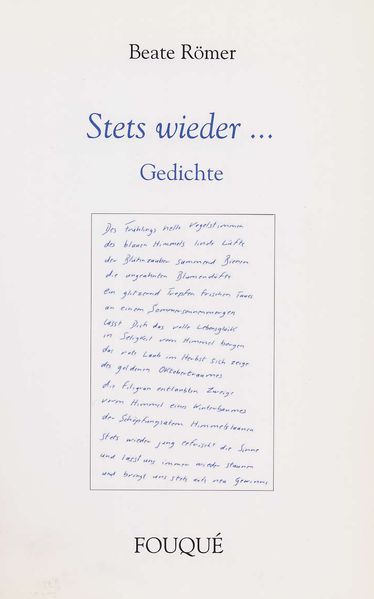 Beate Römer
Stets wieder ...
Gedichte
Des Frühlings helle Vogelstimmen
des blauen Himmels linde Lüfte
der Blütenzauber summend Bienen
die ungeahnten Blumendüfte
ein glitzernd Tropfen frischen Taues
an einem Sommersonnenmorgen
lässt Dich das volle Lebensglück
in Seligkeit vom Himmel borgen
das rote Laub im Herbst sich zeige
des goldenen
die filigran entlaubten Zweige
vorm Himmel eines Winterbaumes
der Schöpfungsatem
stets wieder jung erfrischt die Sinne
und lässt uns immer wieder staunen
und bringt uns stets aufs neu Gewinne
FOUQUÉ